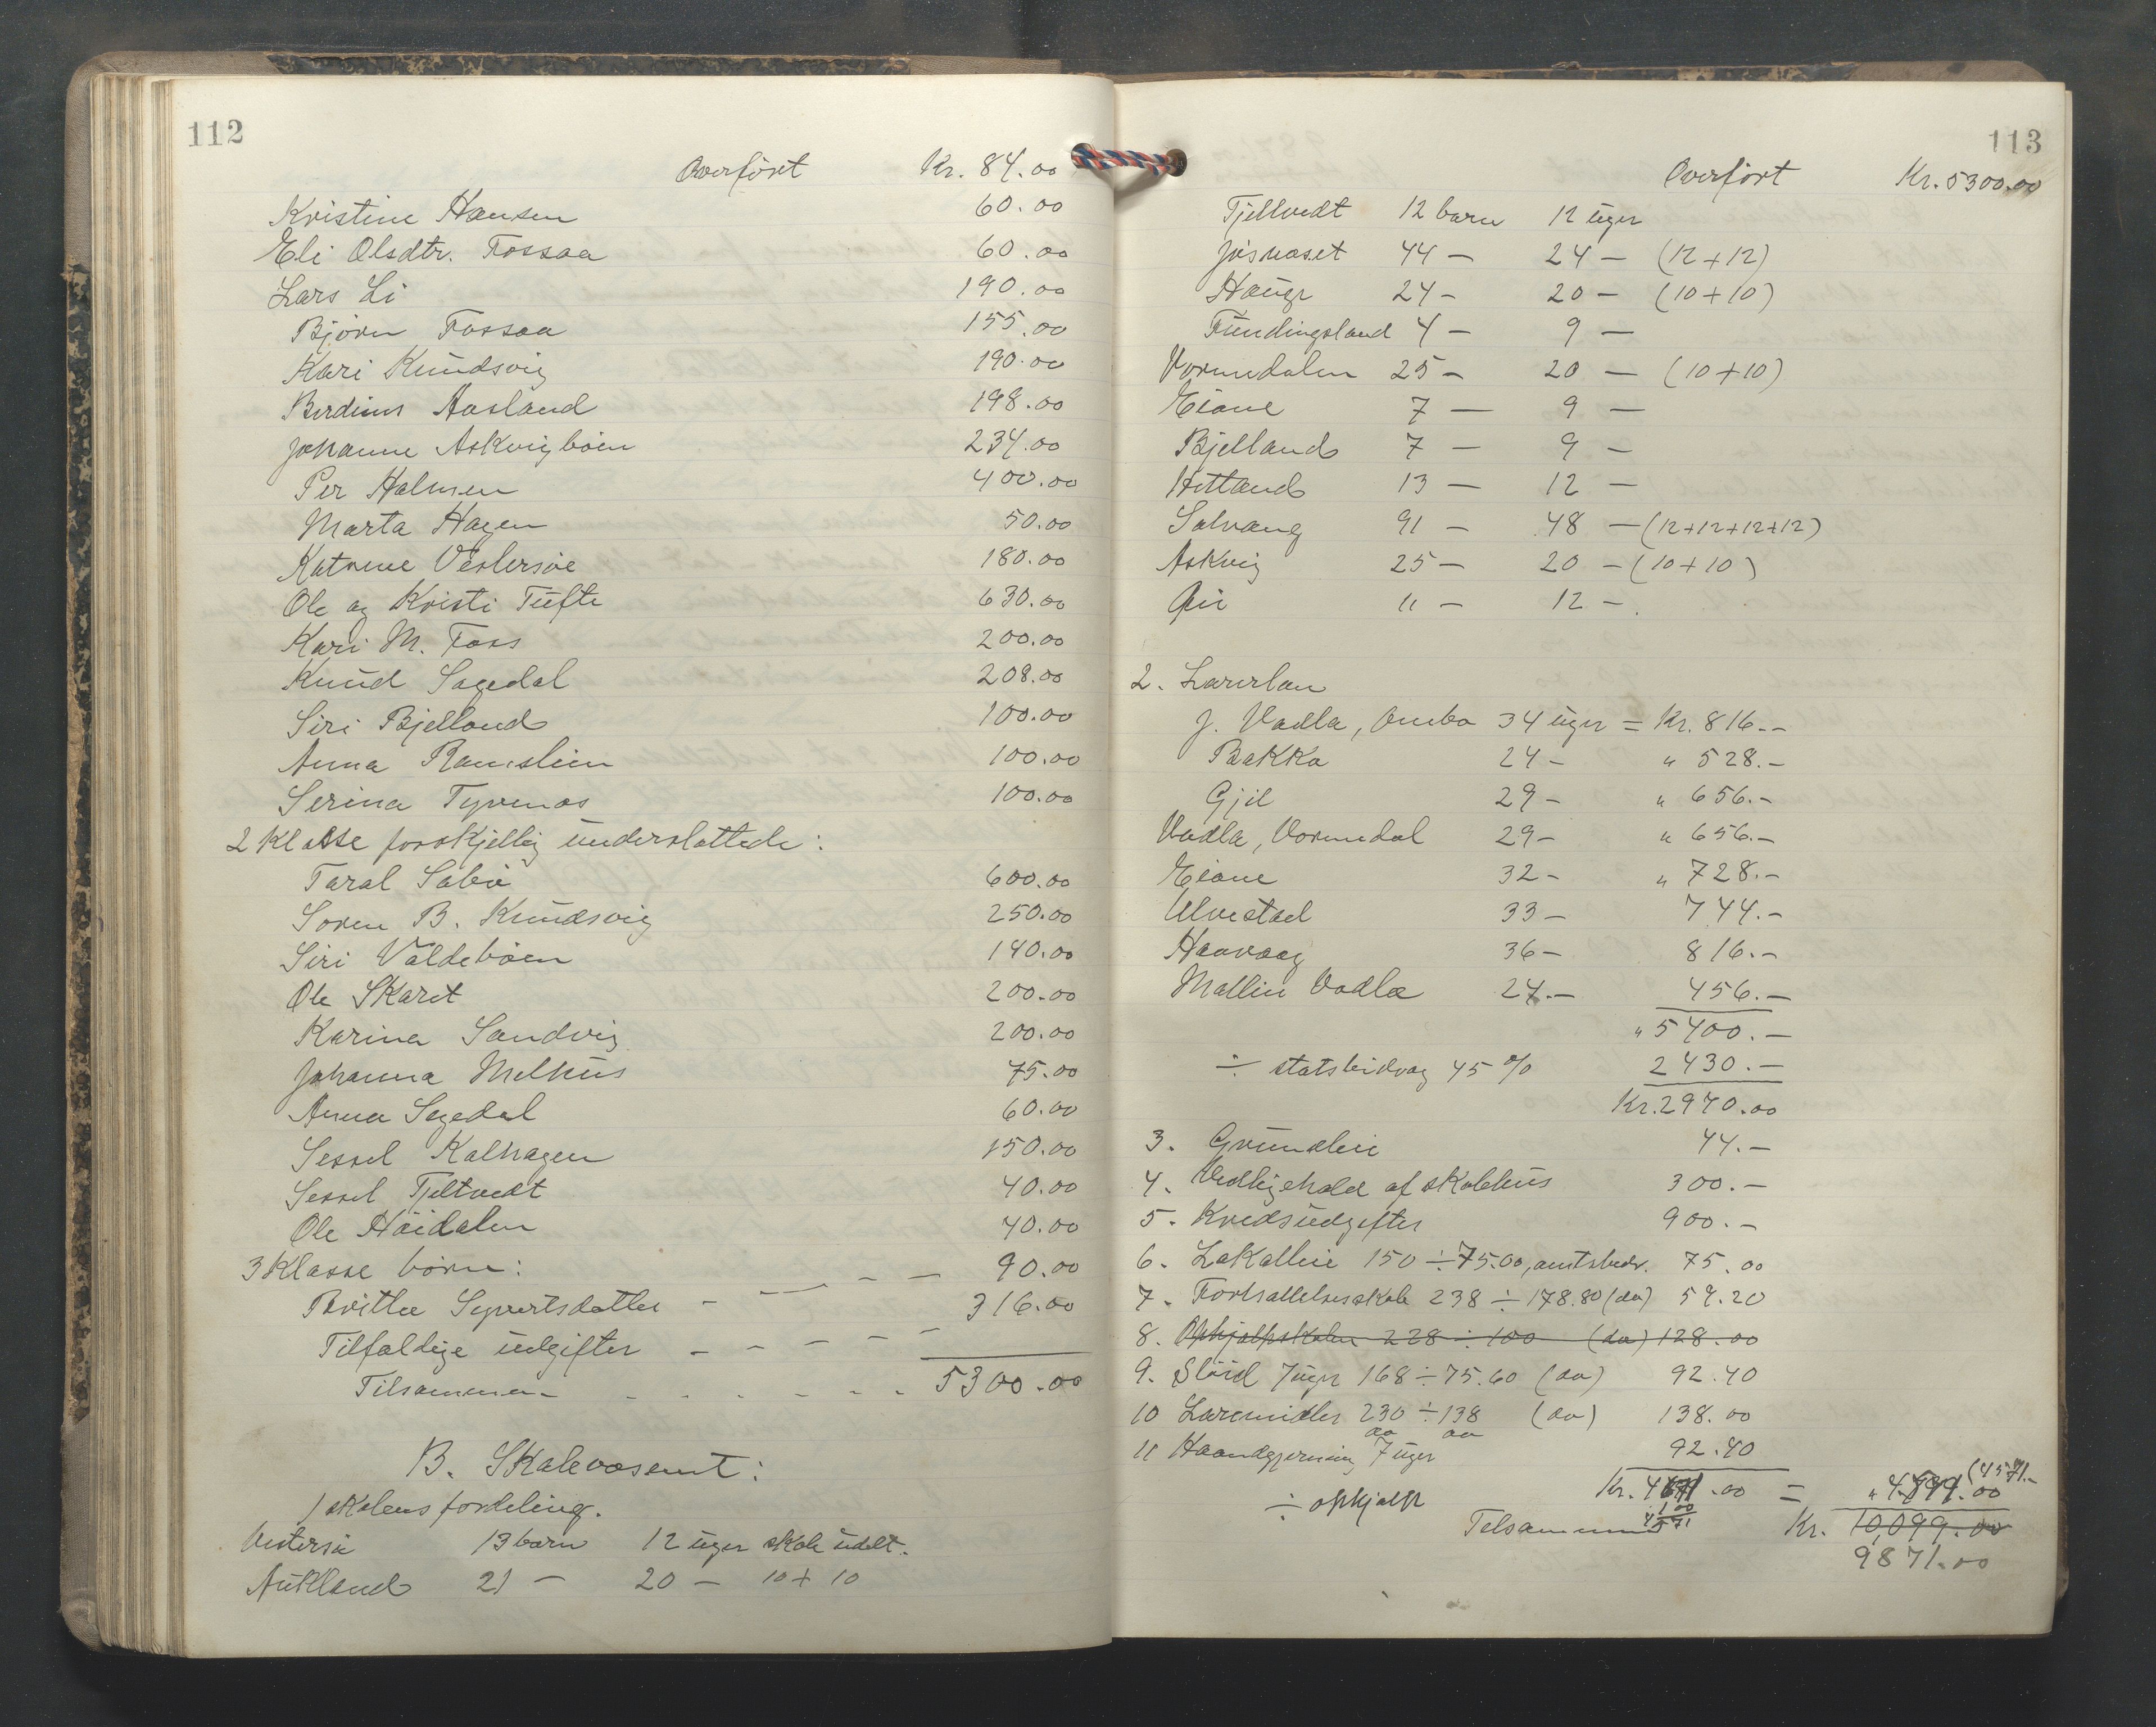 112
Overført Kr. 84.00
Kristine Hansen 60.00
Eli Olsdtr. Fossaa 60.00
Lars Li 190.00
Bjørn Fossaa 155.00
Kari Knudsvig 190.00
Berdines Aasland 198.00
Johanne Askvigbøen 234.00
Per Halmen 400.00
Marta Hagen 50.00
Katrine Vestersøe 180.00
Ole og Kristi Tufte 630.00
Kari M. Foss 200.00
Knud Sagedal 208.00
Siri Bjelland 100.00
Anna Ramslien 100.00
Serina Tyvenas 100.00
2 Klasse forskjellig understøttede:
Taral Sabø 600.00
Soren B. Knudsvig 250.00
Siri Valdebøen 140.00
Ole Skaret 200.00
Karina Sandvig 200.00
Johanna Melhus 75.00
Anna Sagedal 60.00
Sessel Kalhagen 150.00
Sessel Tjeltvedt 40.00
Ole Høidalen 40.00
3 Klasse børn: 90.00
Britha Syvertsdatter - - - - 316.00
Tilfældige udgifter - - - - -
Tilsammen - - - - - - 5300.00
B. Skolevæsenet:
1 skolens fordeling.
Vestersø 13 barn 12 uger skole udelt.
Aukland 21 - 20 - 10 + 10
113
Overført Kr. 5300.00
Tjeltvedt 12 barn 12 uger
Jøsnaset 44 - 24 - (12 + 12)
Hauge 24 - 20 - (10 + 10)
Fundingsland 4 - 9 -
Vormedalen 25 - 20 - (10 + 10)
Eiane 7 - 9 -
Bjelland 7 - 9 -
Hetland 13 - 12 -
Solvang 91 - 48 - (12+12+12+12)
Askvig 25 - 20 - (10 + 10)
11 - 12 -
2. Lærerløn
J. Vadla, Ombo 34 uger = Kr. 816.-
Bakka 24 - " 528.-
Gjil 29 - " 656.-
Vadla, Vormedal 29 - " 656.-
Eiane 32 - " 728.-
Ulvestad 33 - 744.-
Haavaag 36 - 816.-
Mallin Vadla 24.- 456.-
" 5400.-
÷ statsbidrag 45 % 2430.-
Kr. 2970.00
3. Grundleie 44.-
4. Vedligehold af skolehus 300.-
5. Kredsudgifter 900.-
6. Lokalleie 150 ÷ 75.00, amtsbidr. 75.00
7. Fortsættelsesskole 238 ÷ 178.80 (do) 59.20
8. Ophjælpskolen 228 ÷ 100 (do) 128.00
9. Sløid 7 uger 168 ÷ 75.60 (do) 92.40
10 Læremidler 230 ÷ 138 (do) 138.00
do do
11 Haandgjerning 7 uger 92.40
Kr. 4671.00 = " 4.799.00 (4571.-
÷ ophjælp 100
Tilsammen 4571 Kr. 10,099.00
9871.00